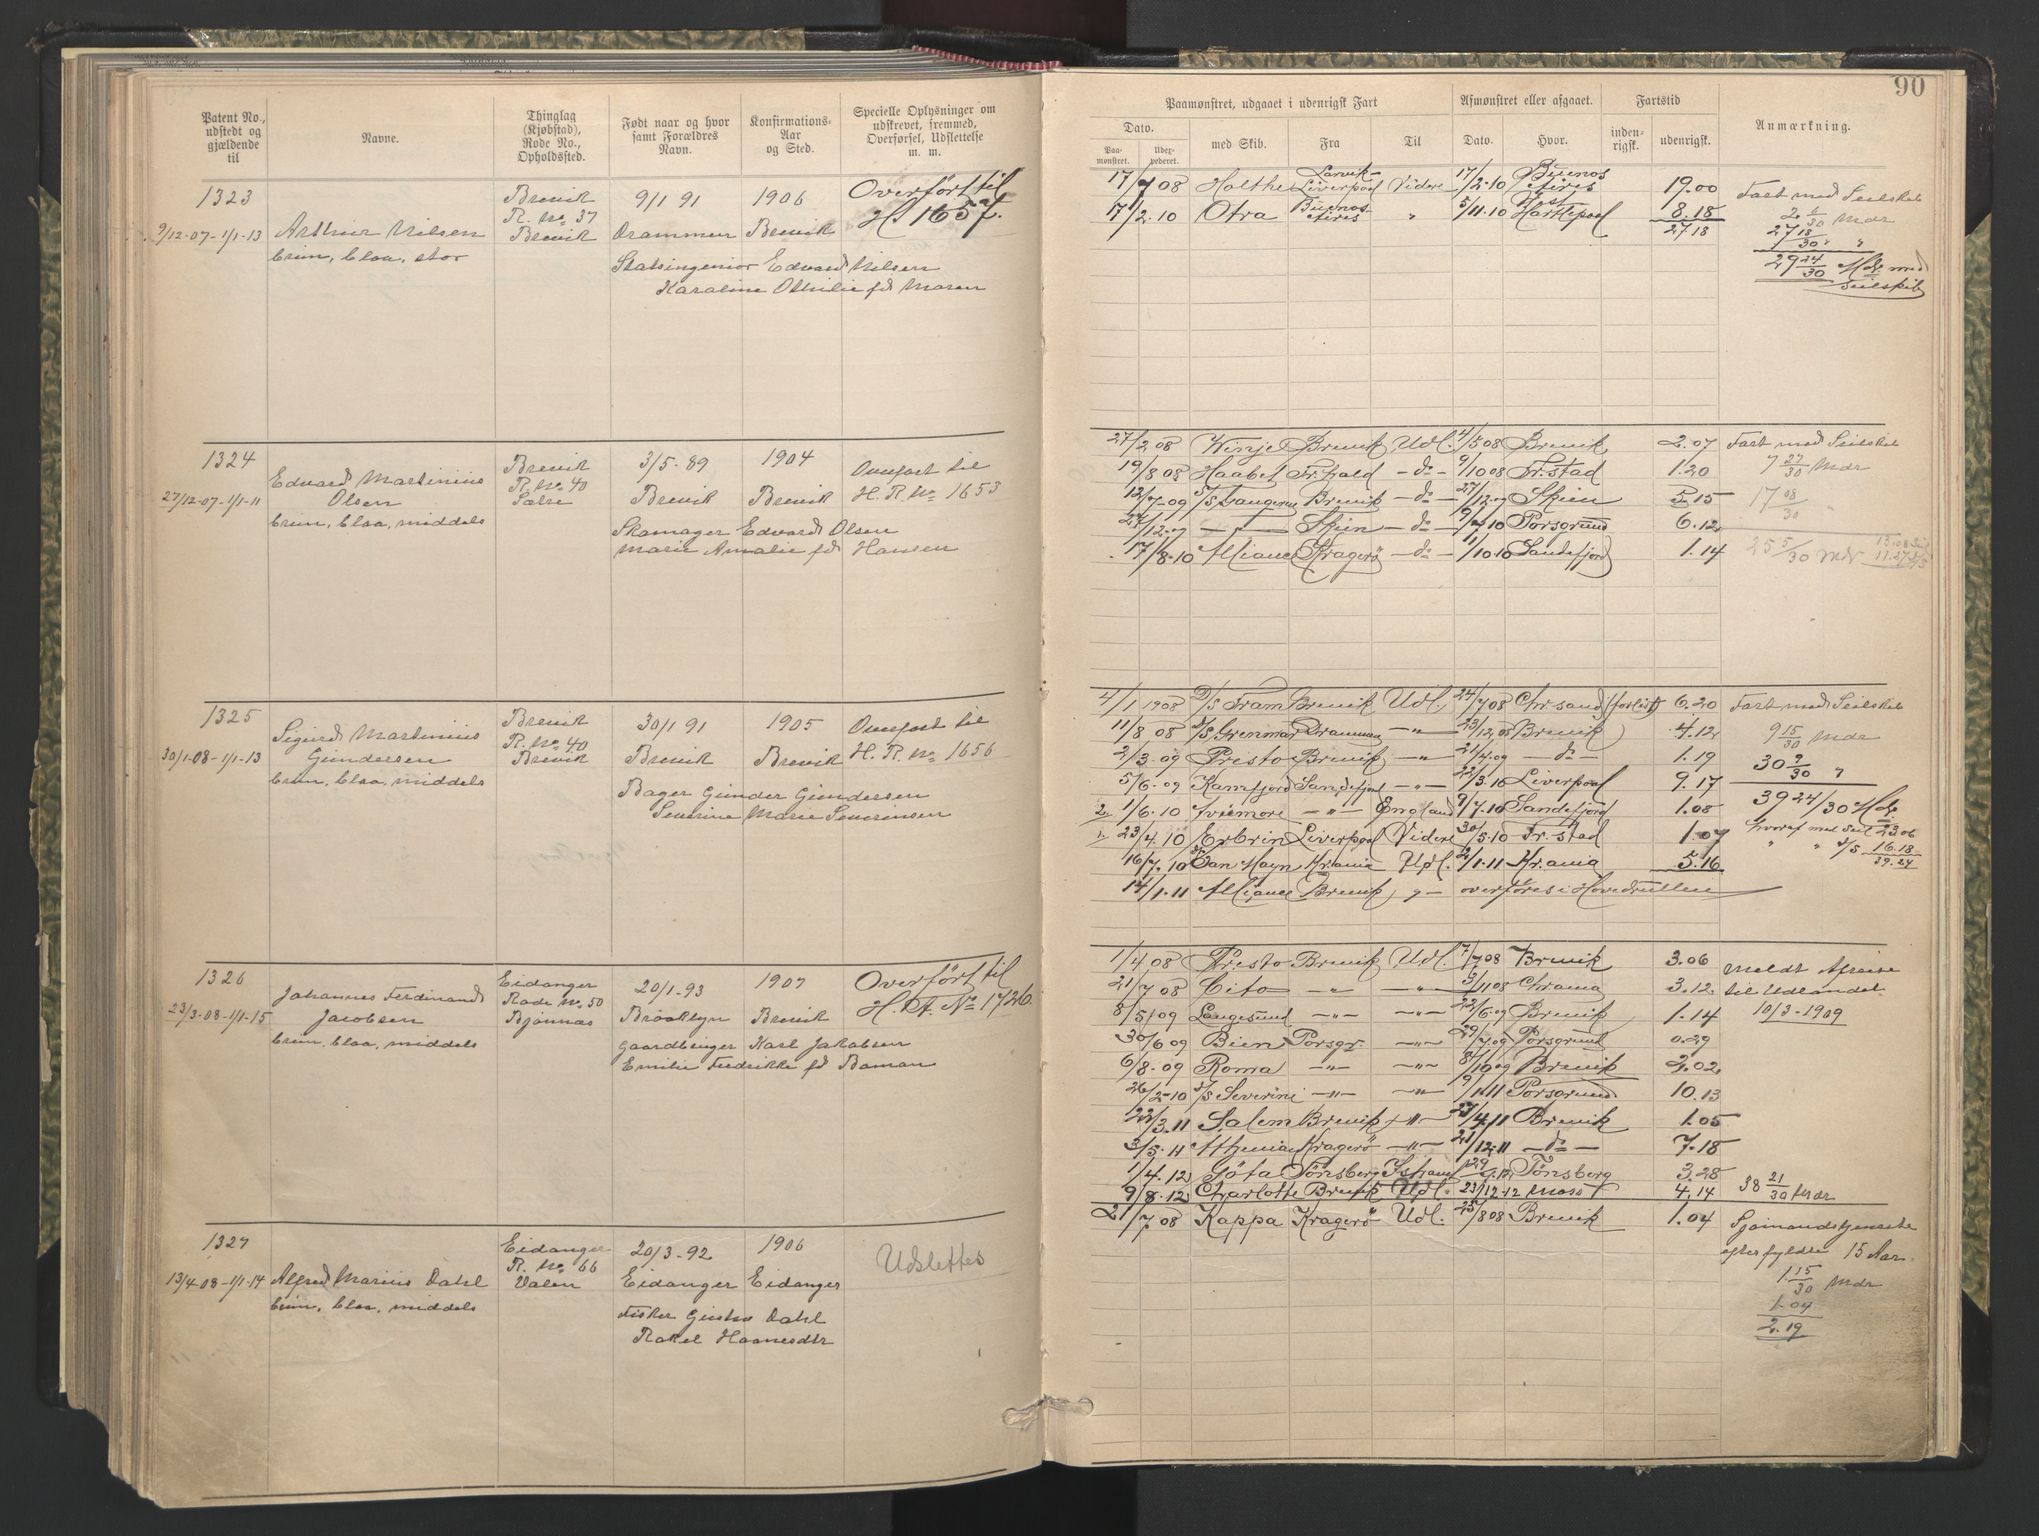 90
Patent No.,
udstedt og
gjældende
til
Navne.
Thinglag
(Kjøbstad),
Rode No.,
Opholdssted.
Født naar og hvor
samt Forældres
Navn.
Konfirmations-
Aar
og Sted.
Specielle Oplysninger om
udskrevet, fremmed,
Overførsel, Udslettelse
m. m.
Paamønstret, udgaaet i udenrigsk Fart
Afmønstret eller afgaaet.
Fartstid
Anmærkning.
Dato.
Paa-
mønstret.
Uder-
pederet.
med Skib.
Fra
Til
Dato.
Hvor.
inden-
rigsk.
udenrigsk.
1323
9/12-07-1/1-13
Arthur Nilsen
brun, blaa, stor
Brevik
R. No 37
Brevik
9/1 91
Drammen
1906
Brevik
Statsingeniør Edvard Nilsen
Karoline Othilie fd Maren
Overført til
H. 1657.
17/7 08 Holthe Larvik-Liverpool Videre 17/2-10 Buenos Aires 19.00
17/2.10 Otra Buenos Aires " 5/11.10 Hartlepool 8.18
27.18
Fart med Seilskib
2 6/30 Mdr
27 18/30 " "
29 24/30 Mdr med
Seilskib
1324
27/12-07-1/1-11
Edvard Martinius
Olsen
brun, blaa, middels
Brevik
R. No 40
Sætre
3/5-89
Brevik
1904
Brevik
Skomager Edvard Olsen
Marie Amalie fd Hansen
Overført til
H. R. No 1653
27/2 08 Winje Brevik Udl. 4/5 08 Brevik 2.07
19/8 08 Haabet Fr.hald -do- 9/10 08 Fr.stad 1.20
12/7-09 S/S Langesund Brevik -do- 27/12.09 Skien 5.15
27/12.09 - " - Skien -do- 9/7 10 Porsgrund 6.12
17/8-10 Alliance Kragerø -do- 1/10 10 Sandefjord 1.14
Fart med Seilskib
7 27/30 Mdr
17 08/30 "
25 5/30 Mdr
1325
30/1-08-1/1-13
Sigurd Martinius
Gundersen
brun, blaa, middels
Brevik
R. No 40
Brevik
30/1 91
Brevik
1905
Brevik
Bager Gunder Gundersen
Severine Marie Sørensen
Overført til
H. R. No 1656
4/1 1908 S/S Fram Brevik Udl. 24/7 08 Chrsand (forlist) 6.20
11/8 08 S/S Grenmar Drammen -"- 23/12 08 Brevik 4.12
2/3-09 Presto Brevik -"- 21/4-09 -do- 1.19
5/6-09 Kamfjord Sandefjord -"- 22/3.10 Liverpool 9.17
2. 1/6.10 Aviemore -"- England 9/7.10 Sandefjord 1.08
1. 23/4.10 Erbrin Liverpool Videre 30/5.10 Fr.stad 1.07
16/7.10 S/S Jan Mayn Kr.ania Udl. 2/1-11 Kr.ania 5.16
14/1.11 Alliance Brevik " - overføres i Hovedrullen
Fart med Seilskib
9 15/30 Mdr
30 9/30 "
39 24/30 Mdr
hvoraf med Seil 23.06
" " S/S 16.18
39.24
1326
23/3-08-1/1-15
Johannes Ferdinand
Jacobsen
brun, blaa, middels
Eidanger
Rode No 50
Bjønnæs
20/1-93
Brooklyn
1907
Brevik
Gaardbruger Karl Jakobsen
Emilie Fredrikke fd Roman
Overført til
H. R. No 1726.
1/4 08 Presto Brevik Udl. 7/7 08 Brevik 3.06
21/7 08 Cito -"- -"- 3/11 08 Chrania 3.12.
8/5 09 Langesund -"- -"- 22/6-09 Brevik 1.14
30/6 09 Bien Porsgr. -"- 29/7 09 Porsgrund 0.29
6/8-09 Roma -"- -"- 8/10 09 Brevik 2.02
26/2-10 S/S Severine -"- -"- 9/1 11 Porsgrund 10.13
22/3.11 Salem Brevik -"- 27/4 11 Brevik 1.05
3/5.11 Athenian Kragerø -"- 21/12.11 -do- 7.18
1/4.12 Göta Tønsberg Tønsberg 3.28
9/8.12 Charlotte Brevik Udl. 23/12-12 Moss 4.14
Meldt Afreise
til Udlandet
10/3-1909
38 21/30 Mdr
1327
13/4-08-1/1-14
Alfred Marius Dahl
brun, blaa, middels
Eidanger
R. No 66
Valen
20/3-92
Eidanger
1906
Eidanger
Fisker Gustav Dahl
Rakel Hannesdtr
Udslettes
21/7 08 Kappa Kragerø Udl. 25/8 08 Brevik 1.04
Sjømandstjeneste
efter fyldte 15 Aar.
1 15/30 Mdr
1.04
2.19